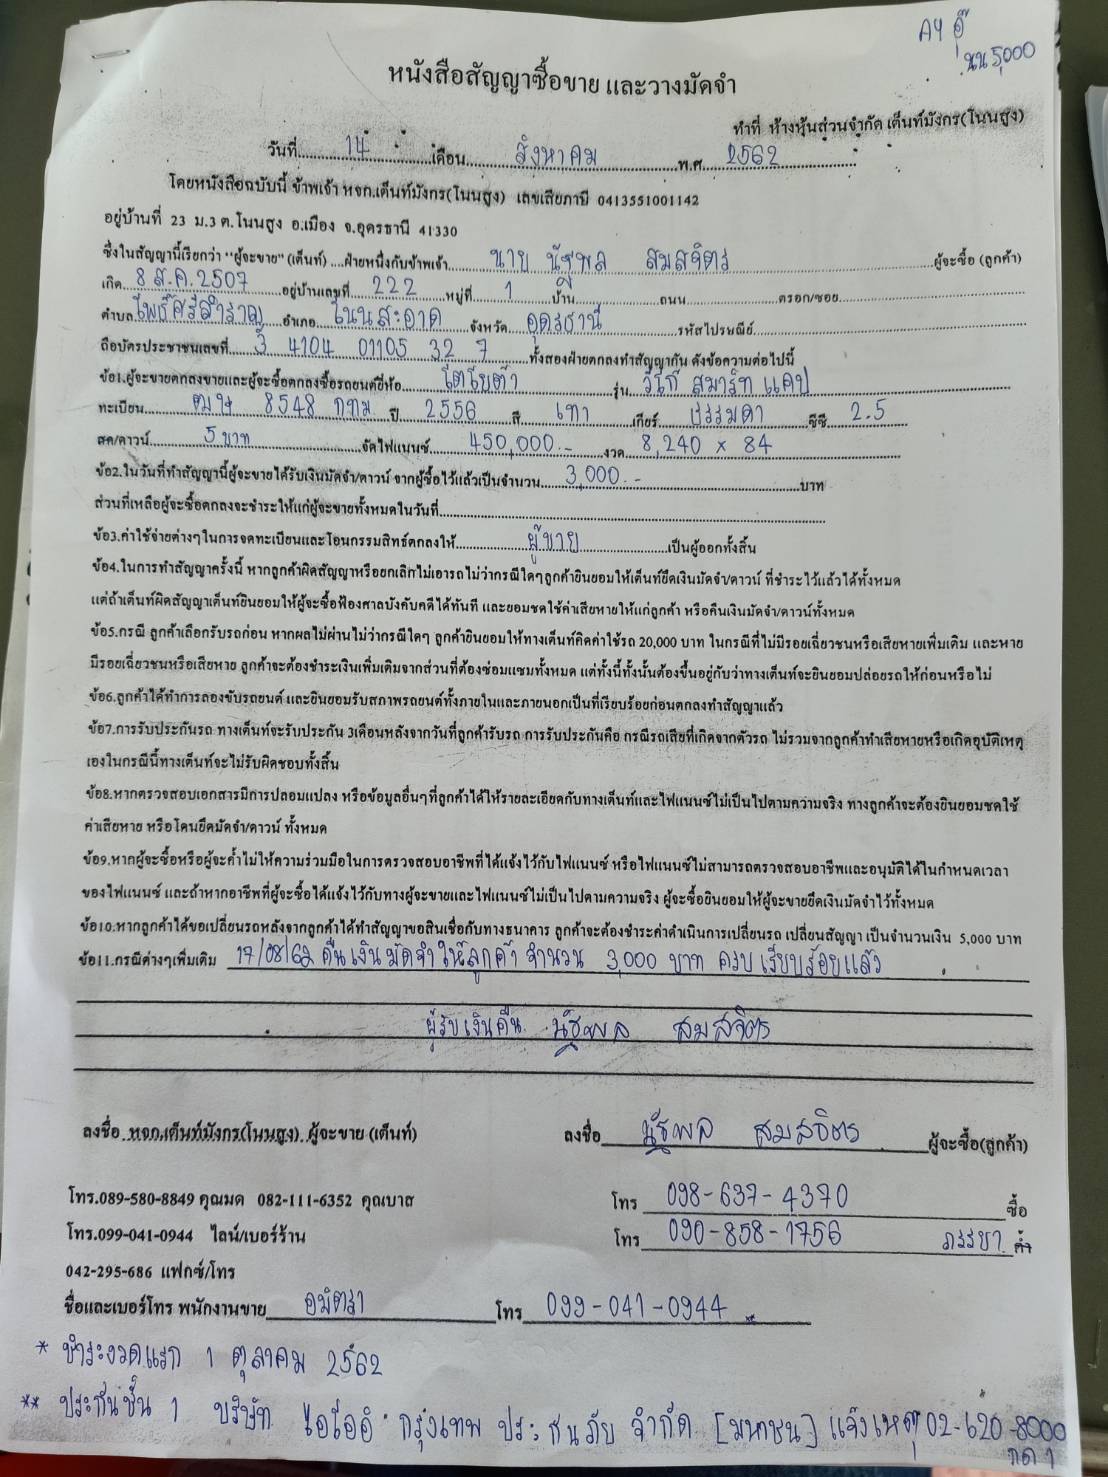 AY อุ๊
นน 5,000
หนังสือสัญญาซื้อขาย และวางมัดจำ
ทำที่ ห้างหุ้นส่วนจำกัด เต็นท์มังกร(โนนสูง)
วันที่ 14 เดือน สิงหาคม พ.ศ. 2562
โดยหนังสือฉบับนี้ ข้าพเจ้า หจก.เต็นท์มังกร(โนนสูง) เลขเสียภาษี 0413551001142
อยู่บ้านที่ 23 ม.3 ต.โนนสูง อ.เมือง จ.อุดรธานี 41330
ซึ่งในสัญญานี้เรียกว่า "ผู้จะขาย" (เต็นท์) ....ฝ่ายหนึ่งกับข้าพเจ้า นาย นัฐพล สมสจิตร ผู้จะซื้อ (ลูกค้า)
เกิด 8 ส.ค. 2507 อยู่บ้านเลขที่ 222 หมู่ที่ 1 บ้าน ถนน ตรอก/ซอย
ตำบล โพธิ์ศรีสำราญ อำเภอ โนนสะอาด จังหวัด อุดรธานี รหัสไปรษณีย์
ถือบัตรประชาชนเลขที่ 3 4104 01105 32 7 ทั้งสองฝ่ายตกลงทำสัญญากัน ดังข้อความต่อไปนี้
ข้อ1.ผู้จะขายตกลงขายและผู้จะซื้อตกลงซื้อรถยนต์ยี่ห้อ โตโยต้า รุ่น วีโก้ สมาร์ท แคป
ทะเบียน ฒษ 8548 กทม. ปี 2556 สี เทา เกียร์ ธรรมดา ซีซี 2.5
สด/ดาวน์ 5 บาท จัดไฟแนนซ์ 450,000.- งวด 8,240 × 84
ข้อ2.ในวันที่ทำสัญญานี้ผู้จะขายได้รับเงินมัดจำ/ดาวน์ จากผู้ซื้อไว้แล้วเป็นจำนวน 3,000.- บาท
ส่วนที่เหลือผู้จะซื้อตกลงจะชำระให้แก่ผู้จะขายทั้งหมดในวันที่
ข้อ3.ค่าใช้จ่ายต่างๆในการจดทะเบียนและโอนกรรมสิทธ์ตกลงให้ ผู้ขาย เป็นผู้ออกทั้งสิ้น
ข้อ4.ในการทำสัญญาครั้งนี้ หากลูกค้าผิดสัญญาหรือยกเลิกไม่เอารถไม่ว่ากรณีใดๆลูกค้ายินยอมให้เต็นท์ยึดเงินมัดจำ/ดาวน์ ที่ชำระไว้แล้วได้ทั้งหมด
แต่ถ้าเต็นท์ผิดสัญญาเต็นท์ยินยอมให้ผู้จะซื้อฟ้องศาลบังคับคดีได้ทันที และยอมชดใช้ค่าเสียหายให้แก่ลูกค้า หรือคืนเงินมัดจำ/ดาวน์ทั้งหมด
ข้อ5.กรณี ลูกค้าเลือกรับรถก่อน หากผลไม่ผ่านไม่ว่ากรณีใดๆ ลูกค้ายินยอมให้ทางเต็นท์คิดค่าใช้รถ 20,000 บาท ในกรณีที่ไม่มีรอยเฉี่ยวชนหรือเสียหายเพิ่มเติม และหาย
มีรอยเฉี่ยวชนหรือเสียหาย ลูกค้าจะต้องชำระเงินเพิ่มเติมจากส่วนที่ต้องซ่อมแซมทั้งหมด แต่ทั้งนี้ทั้งนั้นต้องขึ้นอยู่กับว่าทางเต็นท์จะยินยอมปล่อยรถให้ก่อนหรือไม่
ข้อ6.ลูกค้าได้ทำการลองขับรถยนต์ และยินยอมรับสภาพรถยนต์ทั้งภายในและภายนอกเป็นที่เรียบร้อยก่อนตกลงทำสัญญาแล้ว
ข้อ7.การรับประกันรถ ทางเต็นท์จะรับประกัน 3เดือนหลังจากวันที่ลูกค้ารับรถ การรับประกันคือ กรณีรถเสียที่เกิดจากตัวรถ ไม่รวมจากลูกค้าทำเสียหายหรือเกิดอุบัติเหตุ
เองในกรณีนี้ทางเต็นท์จะไม่รับผิดชอบทั้งสิ้น
ข้อ8.หากตรวจสอบเอกสารมีการปลอมแปลง หรือข้อมูลอื่นๆที่ลูกค้าได้ให้รายละเอียดกับทางเต็นท์และไฟแนนซ์ไม่เป็นไปตามความจริง ทางลูกค้าจะต้องยินยอมชดใช้
ค่าเสียหาย หรือโดนยึดมัดจำ/ดาวน์ ทั้งหมด
ข้อ9.หากผู้จะซื้อหรือผู้จะค้ำไม่ให้ความร่วมมือในการตรวจสอบอาชีพที่ได้แจ้งไว้กับไฟแนนซ์ หรือไฟแนนซ์ไม่สามารถตรวจสอบอาชีพและอนุมัติได้ในกำหนดเวลา
ของไฟแนนซ์ และถ้าหากอาชีพที่ผู้จะซื้อได้แจ้งไว้กับทางผู้จะขายและไฟแนนซ์ไม่เป็นไปตามความจริง ผู้จะซื้อยินยอมให้ผู้จะขายยึดเงินมัดจำไว้ทั้งหมด
ข้อ10.หากลูกค้าได้ขอเปลี่ยนรถหลังจากลูกค้าได้ทำสัญญาขอสินเชื่อกับทางธนาคาร ลูกค้าจะต้องชำระค่าดำเนินการเปลี่ยนรถ เปลี่ยนสัญญา เป็นจำนวนเงิน 5,000 บาท
ข้อ11.กรณีต่างๆเพิ่มเติม 17/08/62 คืนเงินมัดจำให้ลูกค้า จำนวน 3,000 บาท ครบ เรียบร้อยแล้ว
ผู้รับเงินคืน นัฐพล สมสจิตร
ลงชื่อ หจก.เต็นท์มังกร(โนนสูง) ผู้จะขาย (เต็นท์) ลงชื่อ นัฐพล สมสจิตร ผู้จะซื้อ(ลูกค้า)
โทร.089-580-8849 คุณมด 082-111-6352 คุณบาส โทร 098-637-4370 ซื้อ
โทร.099-041-0944 ไลน์/เบอร์ร้าน โทร 090-858-1756 ภรรยา ค้ำ
042-295-686 แฟกซ์/โทร
ชื่อและเบอร์โทร พนักงานขาย อมิตรา โทร 099-041-0944
* ชำระงวดแรก 1 ตุลาคม 2562
** ประกันชั้น 1 บริษัท ไอโออิ กรุงเทพ ประกันภัย จำกัด [มหาชน] แจ้งเหตุ 02-620-8000
กด 1